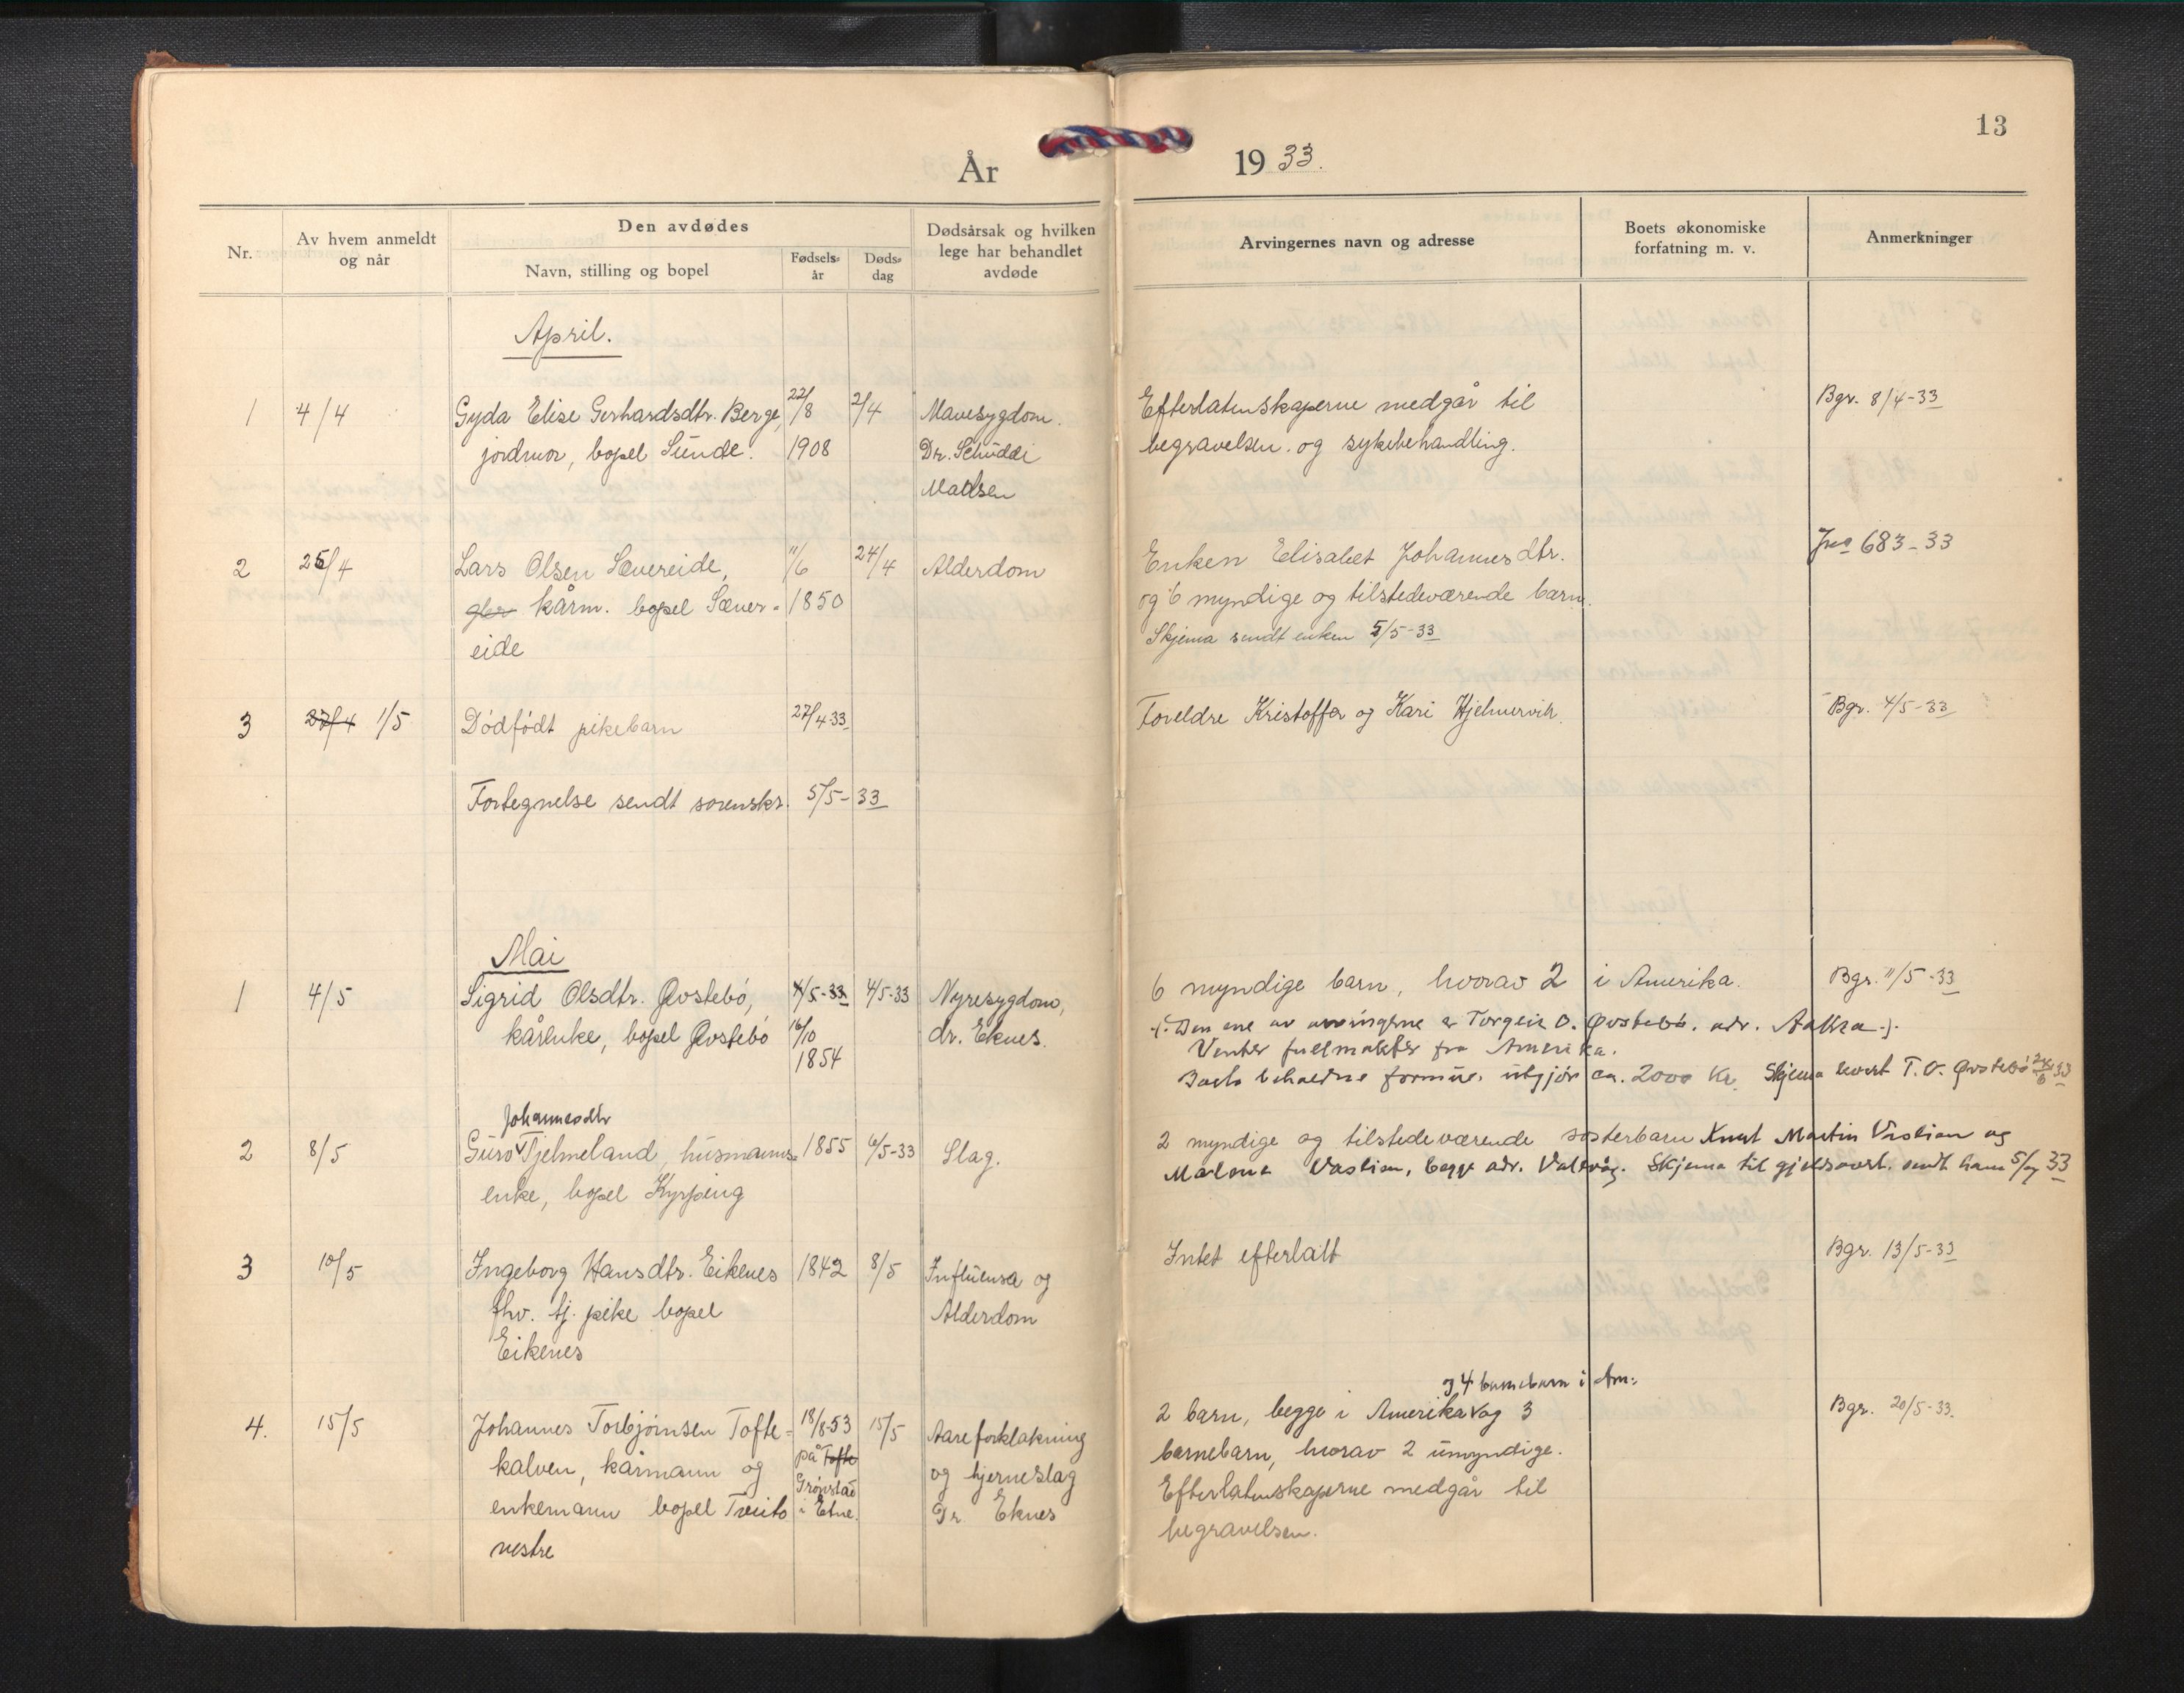 13
År 1933.
Nr.
Av hvem anmeldt
og når
Den avdødes
Navn, stilling og bopel
Fødsels-
år
Døds-
dag
Dødsårsak og hvilken
lege har behandlet
avdøde
Arvingernes navn og adresse
Boets økonomiske
forfatning m. v.
Anmerkninger
April.
1 4/4 Gyda Elise Gerhardsdtr. Berge, 22/8 2/4 Mavesygdom. Efterlatenskaperne medgår til Bgr. 8/4-33
jordmor, bopel Sunde. 1908 Dr. Schüddi begravelsen. og sykebehandling.
Madsen
2 25/4 Lars Olsen Sævereide, 11/6 24/4 Alderdom Enken Elisabet Johannesdtr. Jno 683-33
kårm. bopel Sæver- 1850 og 6 myndige og tilstedeværende barn.
eide Skjema sendt enken 5/5-33
3 27/4 1/5 Dødfødt pikebarn 27/4-33 Foreldre Kristoffer og Kari Hjelmervik. Bgr. 4/5-33
Fortegnelse sendt sorenskr. 5/5-33
Mai
1 4/5 Sigrid Olsdtr. Øvstebø, 4/5-33 4/5-33 Nyresygdom, 6 myndige barn, hvorav 2 i Amerika. Bgr. 11/5-33
kårenke, bopel Øvstebø 16/10 dr. Eknes. -/: Den ene av arvingerne er Torgeir O. Øvstebø. adr. Aakra :/-
1854 Venter fullmakter fra Amerika.
Boets beholdne formue utgjør ca. 2000 Kr. Skjema levert T. O. Øvstebø 24/6 33
Johannesdtr
2 8/5 Guro Tjelmeland, husmanns- 1855 6/5-33 Slag. 2 myndige og tilstedeværende søsterbarn Knut Martin Vaslien og
enke, bopel Kyrping Malene Vaslien, begge adr. Valevåg. Skjema til gjeldsovert. sendt ham 5/7 33
3 10/5 Ingeborg Hansdtr. Eikenes 1842 8/5 Influensa og Intet efterlatt Bgr. 13/5-33
fhv. tj. pike bopel Alderdom
Eikenes
og 4 barnebarn i Am.
4. 15/5 Johannes Torbjørnsen Tofte- 18/8-53 15/5 Aareforklakning 2 barn, begge i Amerika og 3 Bgr. 20/5-33.
kalven, kårmann og på Tofte og hjerneslag barnebarn, hvorav 2 umyndige.
enkemann bopel Tveito Grønstad i Etne. Dr. Eknes Efterlatenskaperne medgår til
vestre begravelsen.